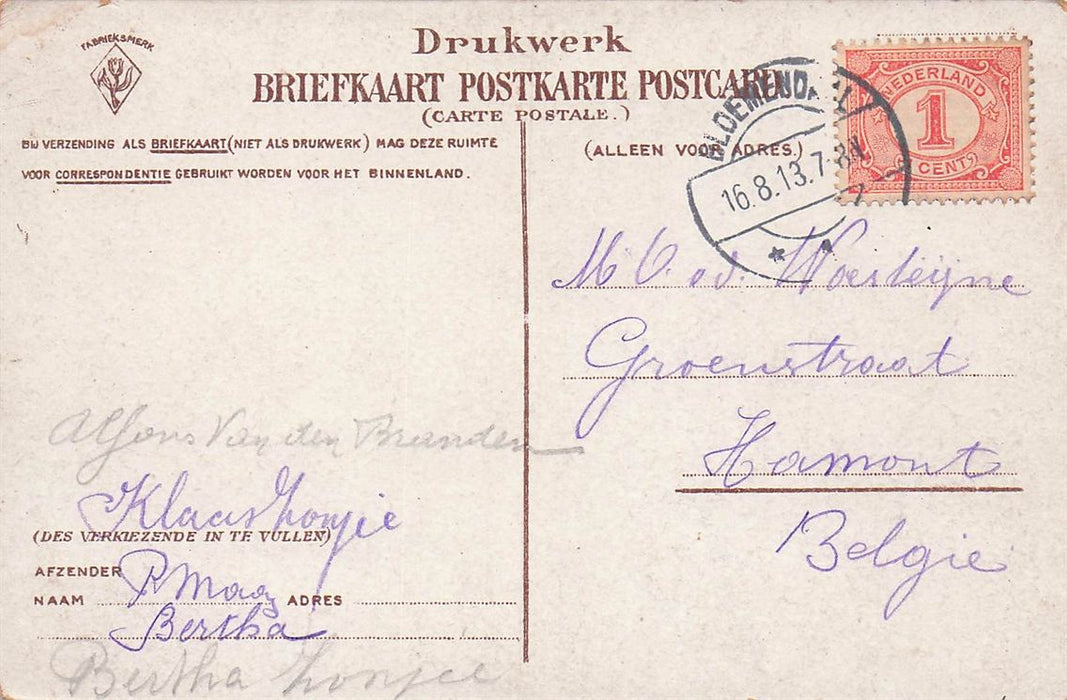 FABRIEKSMERK
Drukwerk
BRIEFKAART POSTKARTE POSTCARD
(CARTE POSTALE.)
BIJ VERZENDING ALS BRIEFKAART (NIET ALS DRUKWERK) MAG DEZE RUIMTE
VOOR CORRESPONDENTIE GEBRUIKT WORDEN VOOR HET BINNENLAND.
(ALLEEN VOOR ADRES.)
NEDERLAND
1
CENT
BLOEMENDAAL
16.8.13.7-8
M v.d. Woesteijne
Groenstraat
Hamont
Belgie
Alfons Van den Branden
Klaas
(DES VERKIEZENDE IN TE VULLEN)
AFZENDER
NAAM P. Maas ADRES
Bertha
Bertha